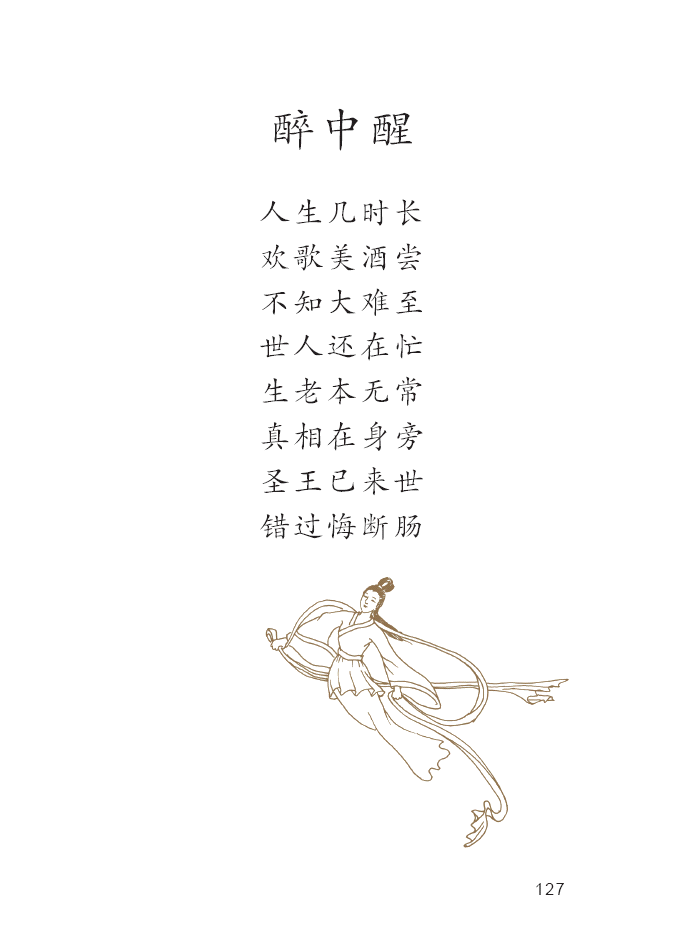 醉中醒
人生几时长
欢歌美酒尝
不知大难至
世人还在忙
生老本无常
真相在身旁
圣王已来世
错过悔断肠
127